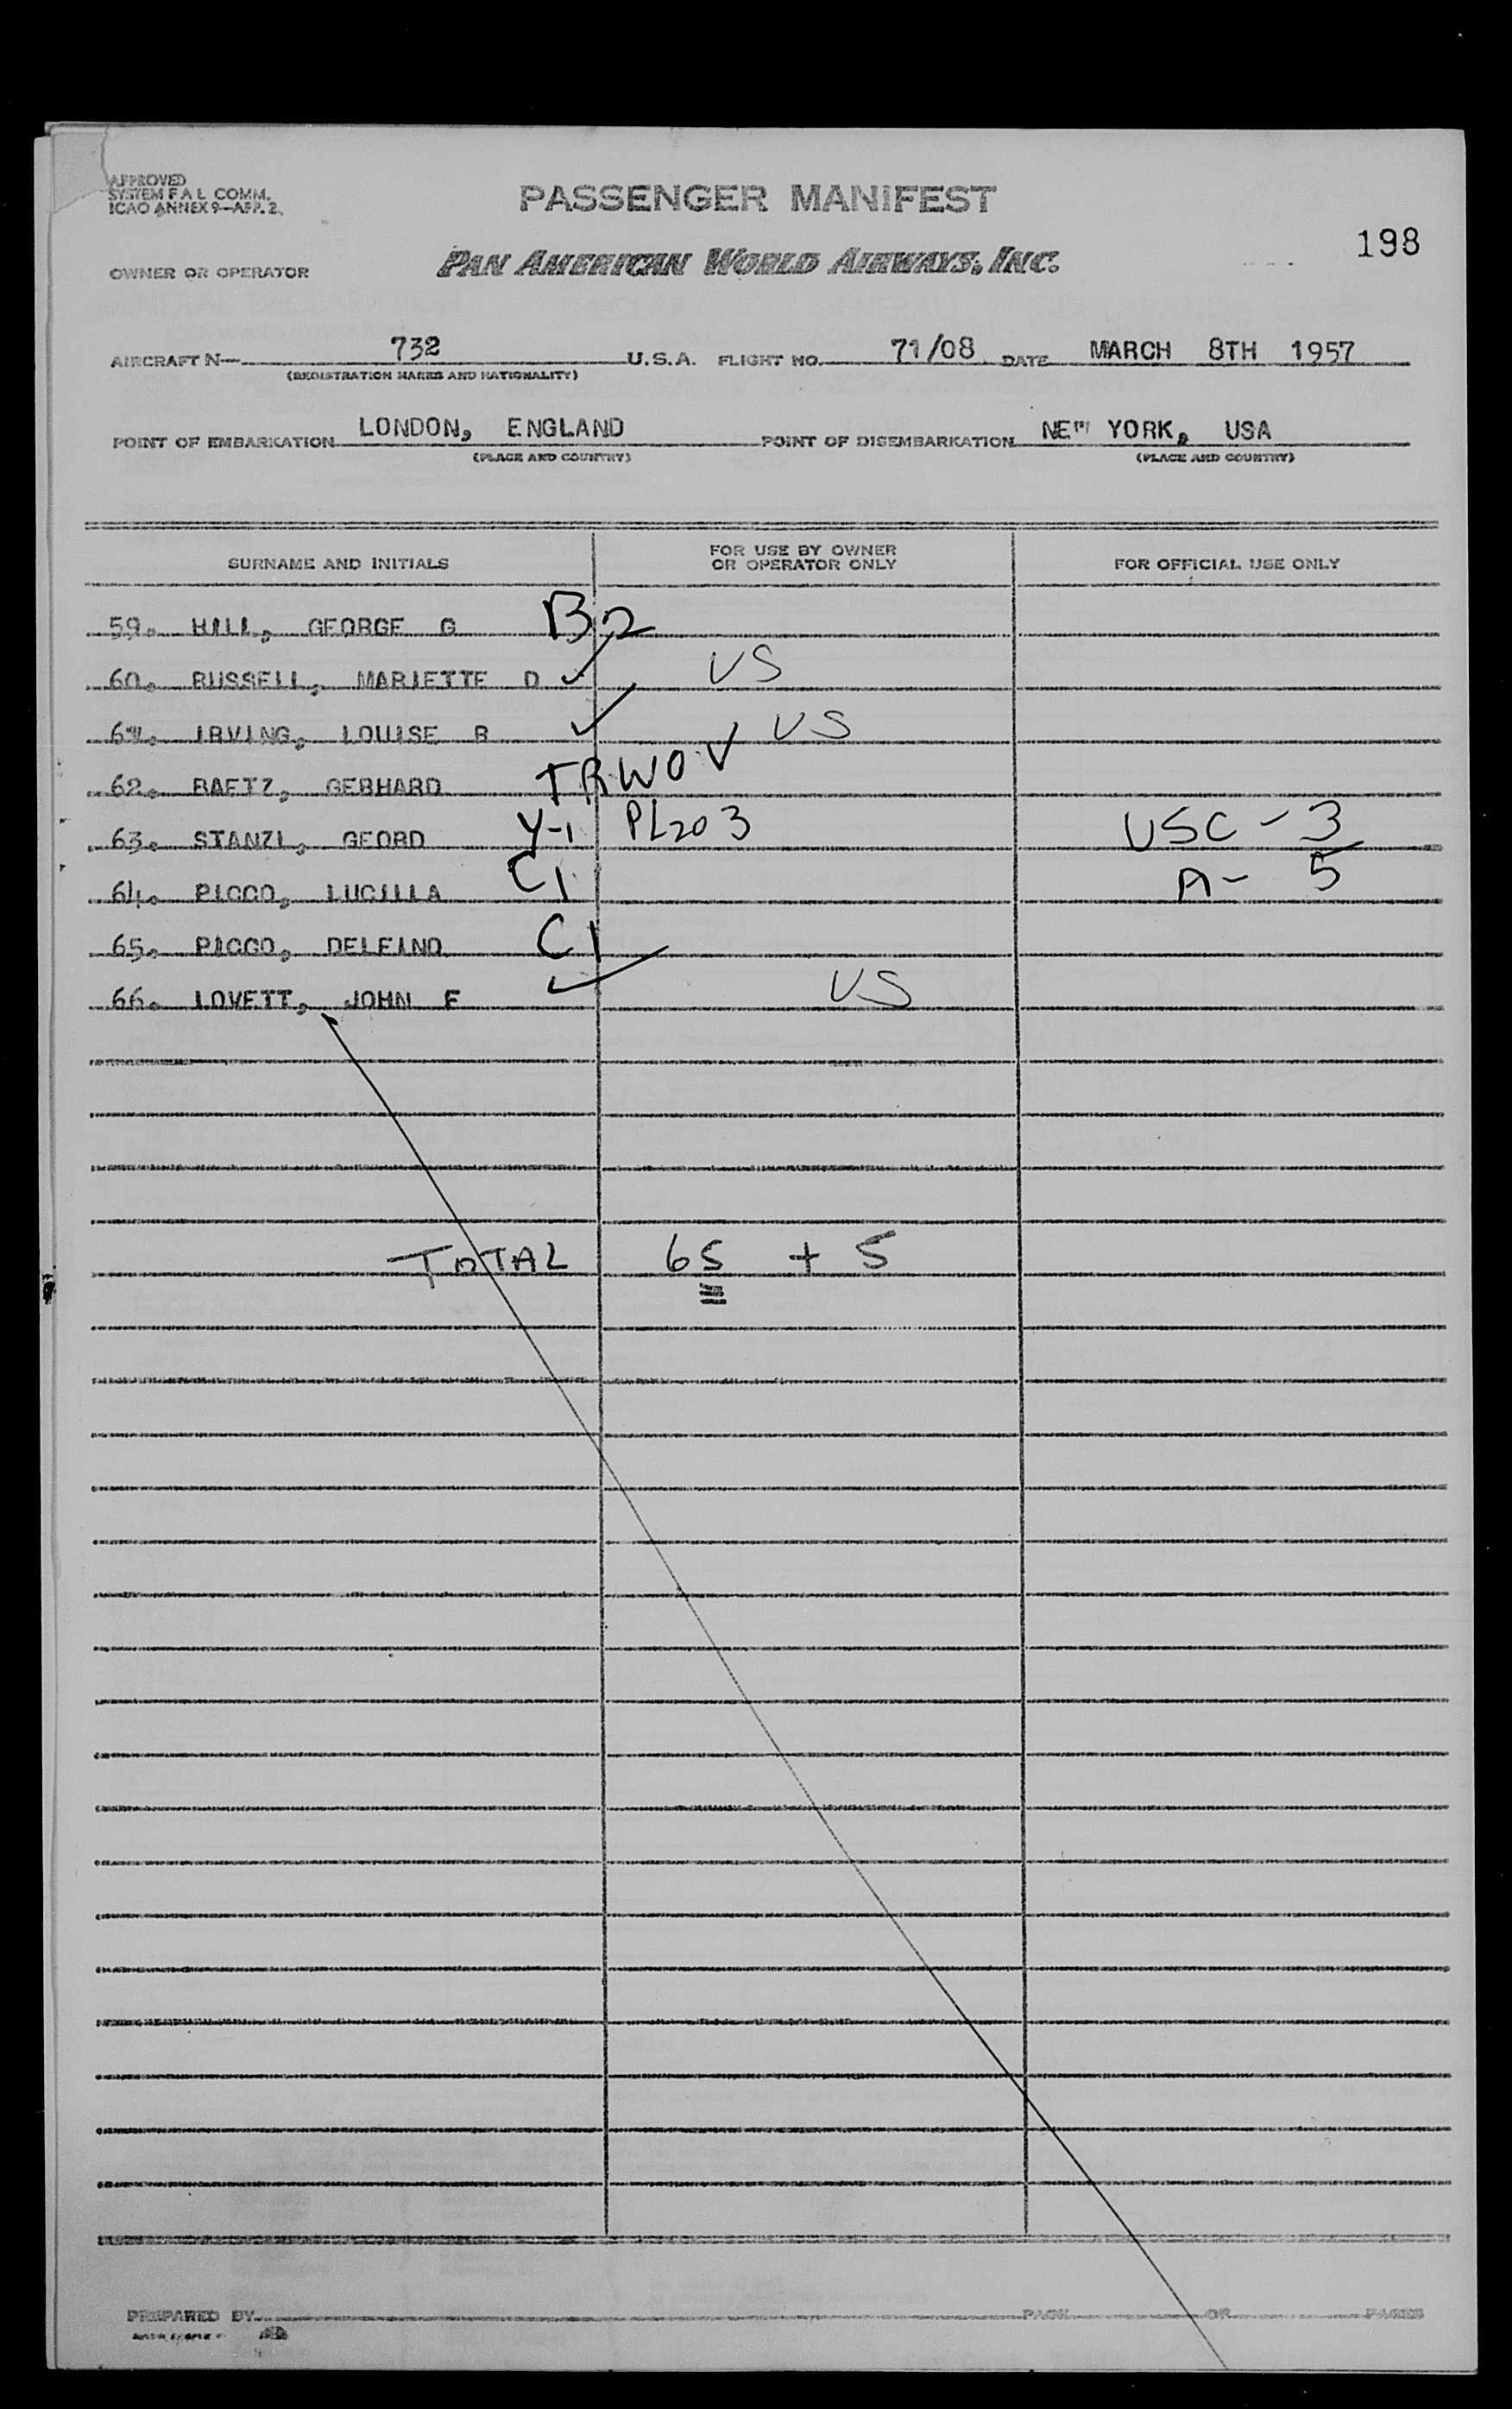 APPROVED
SYSTEM F A L COMM.
ICAO ANNEX 9—APP. 2.
PASSENGER MANIFEST
198
OWNER OR OPERATOR PAN AMERICAN WORLD AIRWAYS, INC.
AIRCRAFT N— 732 U.S.A. FLIGHT NO. 71/08 DATE MARCH 8TH 1957
(REGISTRATION MARKS AND NATIONALITY)
POINT OF EMBARKATION LONDON, ENGLAND POINT OF DISEMBARKATION NEW YORK, USA
(PLACE AND COUNTRY) (PLACE AND COUNTRY)
SURNAME AND INITIALS FOR USE BY OWNER OR OPERATOR ONLY FOR OFFICIAL USE ONLY
59. HILL, GEORGE G B2
60. RUSSELL, MARIETTE D ✓ US
61. IRVING, LOUISE B ✓ US
62. BAETZ, GEBHARD TRWOV
63. STANZL, GEORD Y-1 PL203 USC - 3
64. PICCO, LUCILLA C1 A- 5
65. PICCO, DELFINO C1
66. LOVETT, JOHN F ✓ US
TOTAL 65 + 5
PREPARED BY PAGE OF PAGES